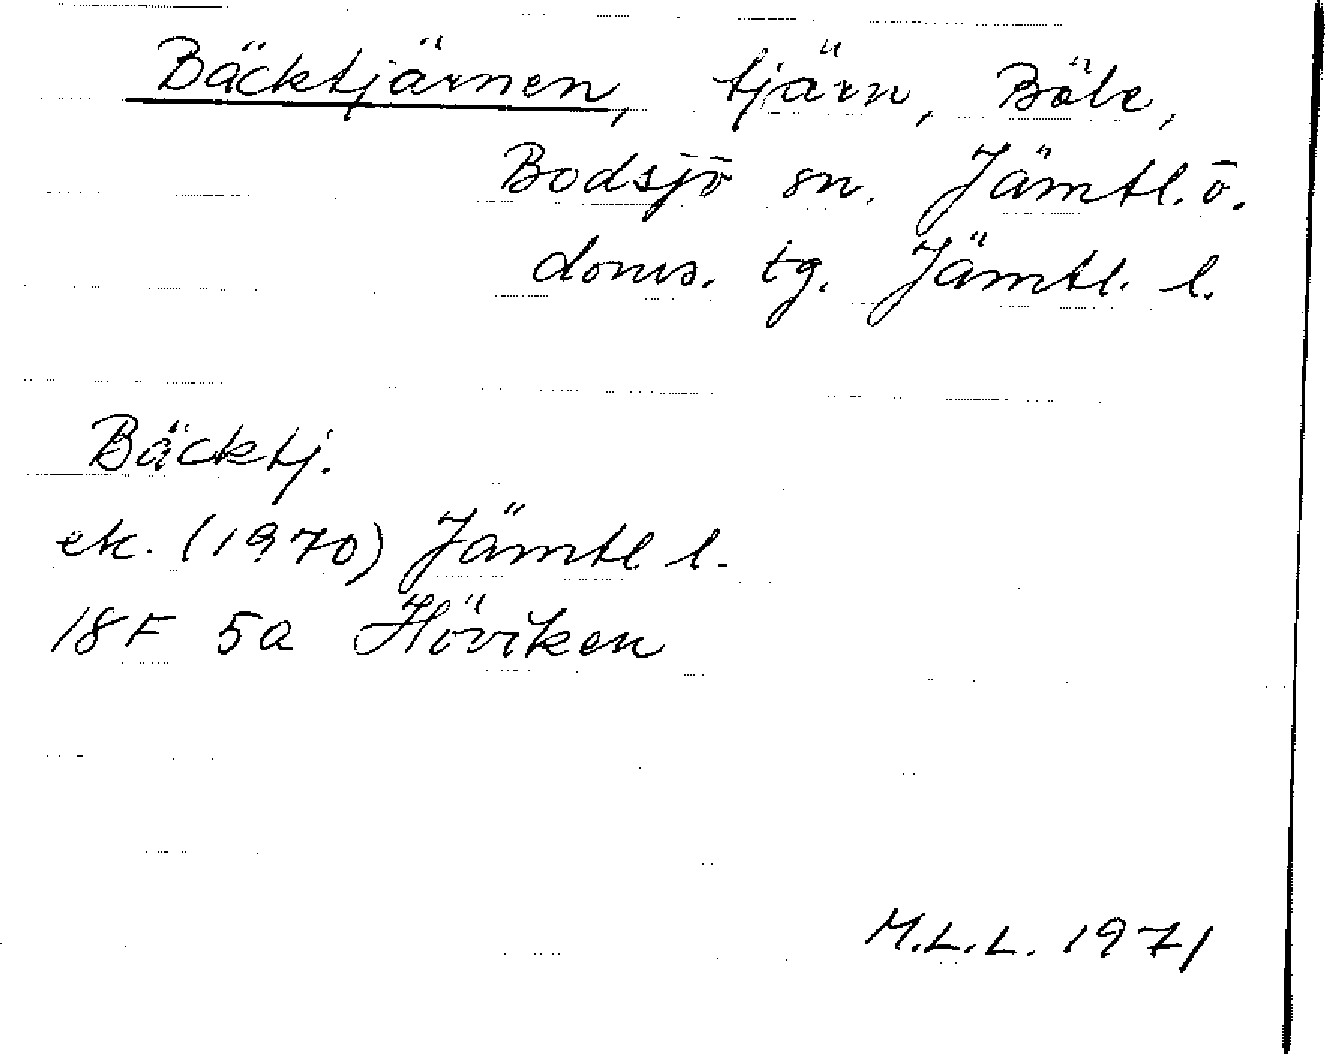 Bäcktjärnen, tjärn, Böle,
Bodsjö sn. Jämtl.ö.
doms. tg. Jämtl. l.
Bäcktj.
ek. (1970) Jämtl l.
18F 5a Höviken
M.L.L. 1971